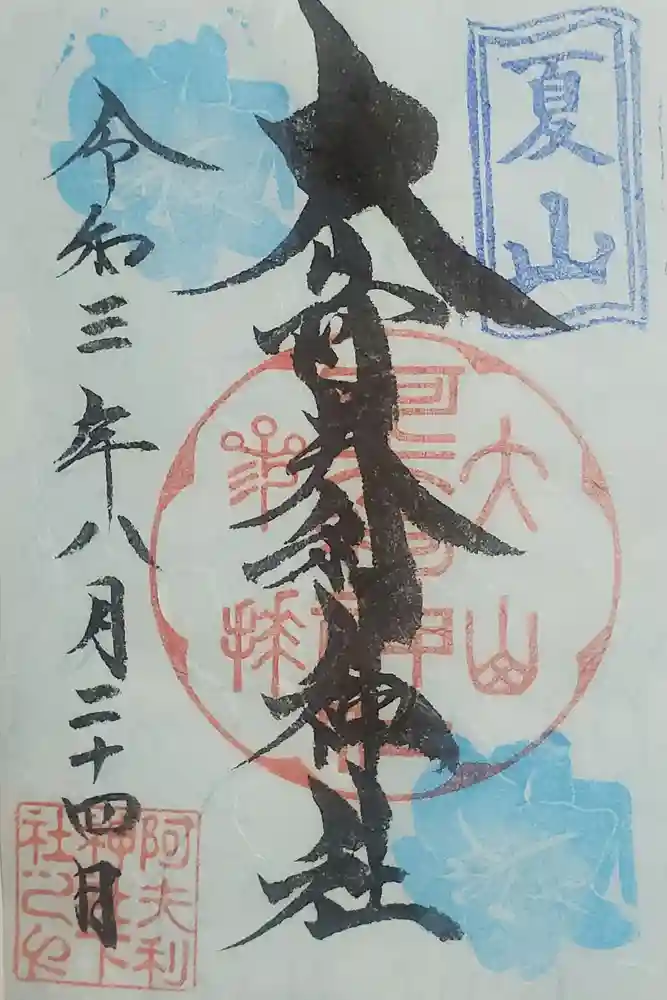 夏山
大山阿夫利神社
大山
奉拝
令和三年八月二十四日
阿夫利
神社下
社之印